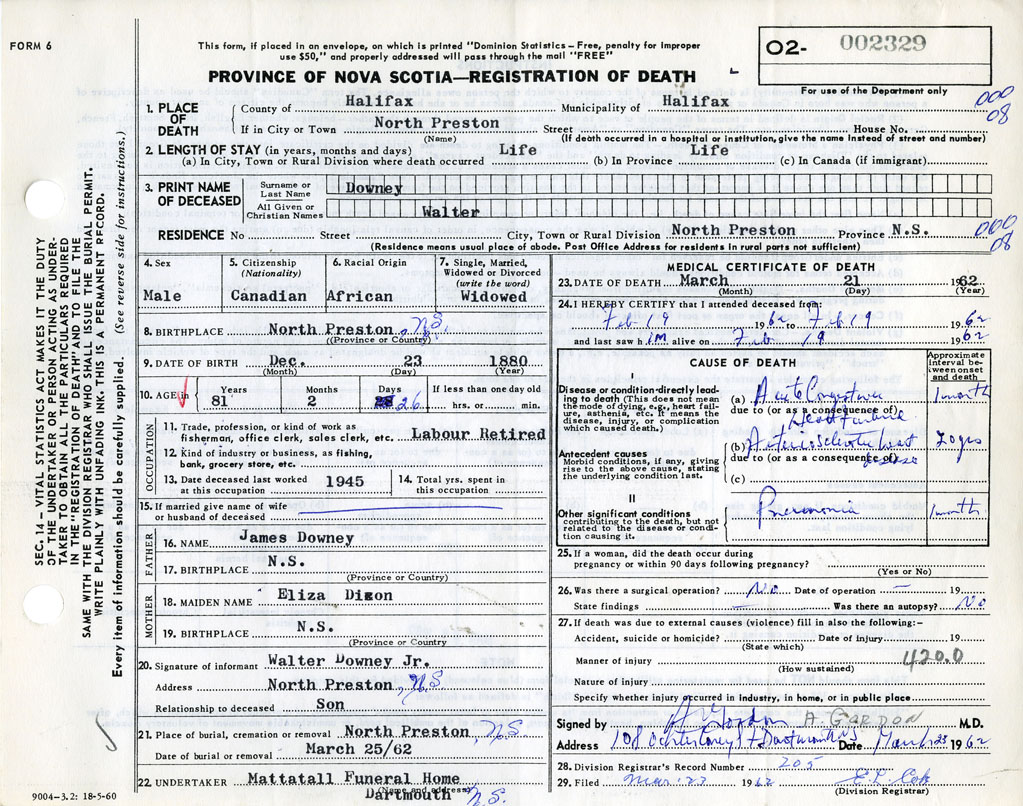 FORM 6
This form, if placed in an envelope, on which is printed "Dominion Statistics – Free, penalty for improper
use $50," and properly addressed will pass through the mail "FREE"
PROVINCE OF NOVA SCOTIA—REGISTRATION OF DEATH
O2- 002329
For use of the Department only
000
08
1. PLACE OF DEATH
County of Halifax Municipality of Halifax
If in City or Town North Preston Street House No.
(Name) (If death occurred in a hospital or institution, give the name instead of street and number)
2. LENGTH OF STAY (in years, months and days)
(a) In City, Town or Rural Division where death occurred Life (b) In Province Life (c) In Canada (if immigrant)
3. PRINT NAME OF DECEASED
Surname or Last Name Downey
All Given or Christian Names Walter
RESIDENCE No Street City, Town or Rural Division North Preston Province N.S.
(Residence means usual place of abode. Post Office Address for residents in rural parts not sufficient)
000
08
4. Sex
Male
5. Citizenship
(Nationality)
Canadian
6. Racial Origin
African
7. Single, Married,
Widowed or Divorced
(write the word)
Widowed
8. BIRTHPLACE North Preston, N.S.
(Province or Country)
9. DATE OF BIRTH Dec. 23 1880
(Month) (Day) (Year)
10. AGE in
Years Months Days If less than one day old
81 2 26 hrs. or min.
OCCUPATION
11. Trade, profession, or kind of work as
fisherman, office clerk, sales clerk, etc. Labour Retired
12. Kind of industry or business, as fishing,
bank, grocery store, etc.
13. Date deceased last worked
at this occupation 1945
14. Total yrs. spent in
this occupation
15. If married give name of wife
or husband of deceased
FATHER
16. NAME James Downey
17. BIRTHPLACE N.S.
(Province or Country)
MOTHER
18. MAIDEN NAME Eliza Dixon
19. BIRTHPLACE N.S.
(Province or Country
20. Signature of informant Walter Downey Jr.
Address North Preston, N.S
Relationship to deceased Son
21. Place of burial, cremation or removal North Preston, N.S
Date of burial or removal March 25/62
22. UNDERTAKER Mattatall Funeral Home
(Name and address)
Dartmouth N.S.
MEDICAL CERTIFICATE OF DEATH
23. DATE OF DEATH March 21 1962
(Month) (Day) (Year)
24. I HEREBY CERTIFY that I attended deceased from:
Feb 19 1962 to Feb 19 1962
and last saw him alive on Feb 19 1962
CAUSE OF DEATH
Approximate
interval be-
tween onset
and death
I
Disease or condition directly lead-
ing to death (This does not mean
the mode of dying, e.g., heart fail-
ure, asthenia, etc. It means the
disease, injury, or complication
which caused death.)
(a) Acute Congestive
Heart Failure
1 month
due to (or as a consequence of)
Antecedent causes
Morbid conditions, if any, giving
rise to the above cause, stating
the underlying condition last.
(b) Arteriosclerotic Heart
disease
due to (or as a consequence of)
(c)
II
Other significant conditions
contributing to the death, but not
related to the disease or condi-
tion causing it.
Pneumonia
1 month
25. If a woman, did the death occur during
pregnancy or within 90 days following pregnancy?
(Yes or No)
26. Was there a surgical operation? No Date of operation — 19
State findings — Was there an autopsy? No
27. If death was due to external causes (violence) fill in also the following:–
Accident, suicide or homicide? Date of injury 19
(State which)
Manner of injury 420.0
(How sustained)
Nature of injury
Specify whether injury occurred in industry, in home, or in public place
Signed by A Gordon A GARDON M.D.
Address 108 Ochterloney St Dartmouth NS Date March 23 1962
28. Division Registrar's Record Number 205
29. Filed Mar. 23 1962
(Division Registrar)
SEC. 14 – VITAL STATISTICS ACT MAKES IT THE DUTY
OF THE UNDERTAKER OR PERSON ACTING AS UNDER-
TAKER TO OBTAIN ALL THE PARTICULARS REQUIRED
IN THE "REGISTRATION OF DEATH" AND TO FILE THE
SAME WITH THE DIVISION REGISTRAR WHO SHALL ISSUE THE BURIAL PERMIT.
WRITE PLAINLY WITH UNFADING INK. THIS IS A PERMANENT RECORD.
Every item of information should be carefully supplied. (See reverse side for instructions.)
9004–3.2: 18-5-60